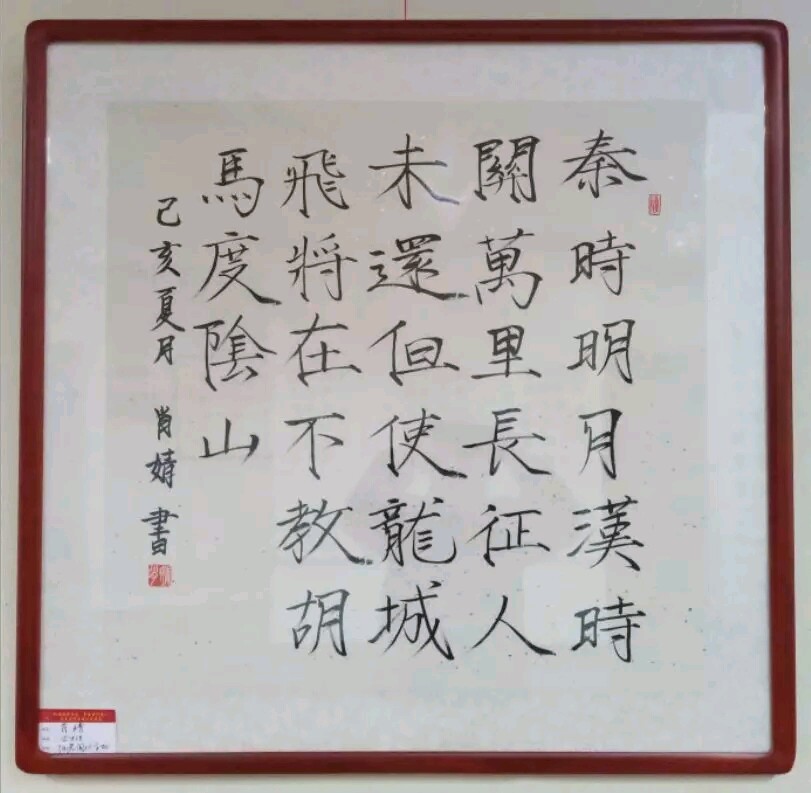 秦時明月漢時
關萬里長征人
未還但使龍城
飛將在不教胡
馬度陰山
己亥夏月 肖婧書